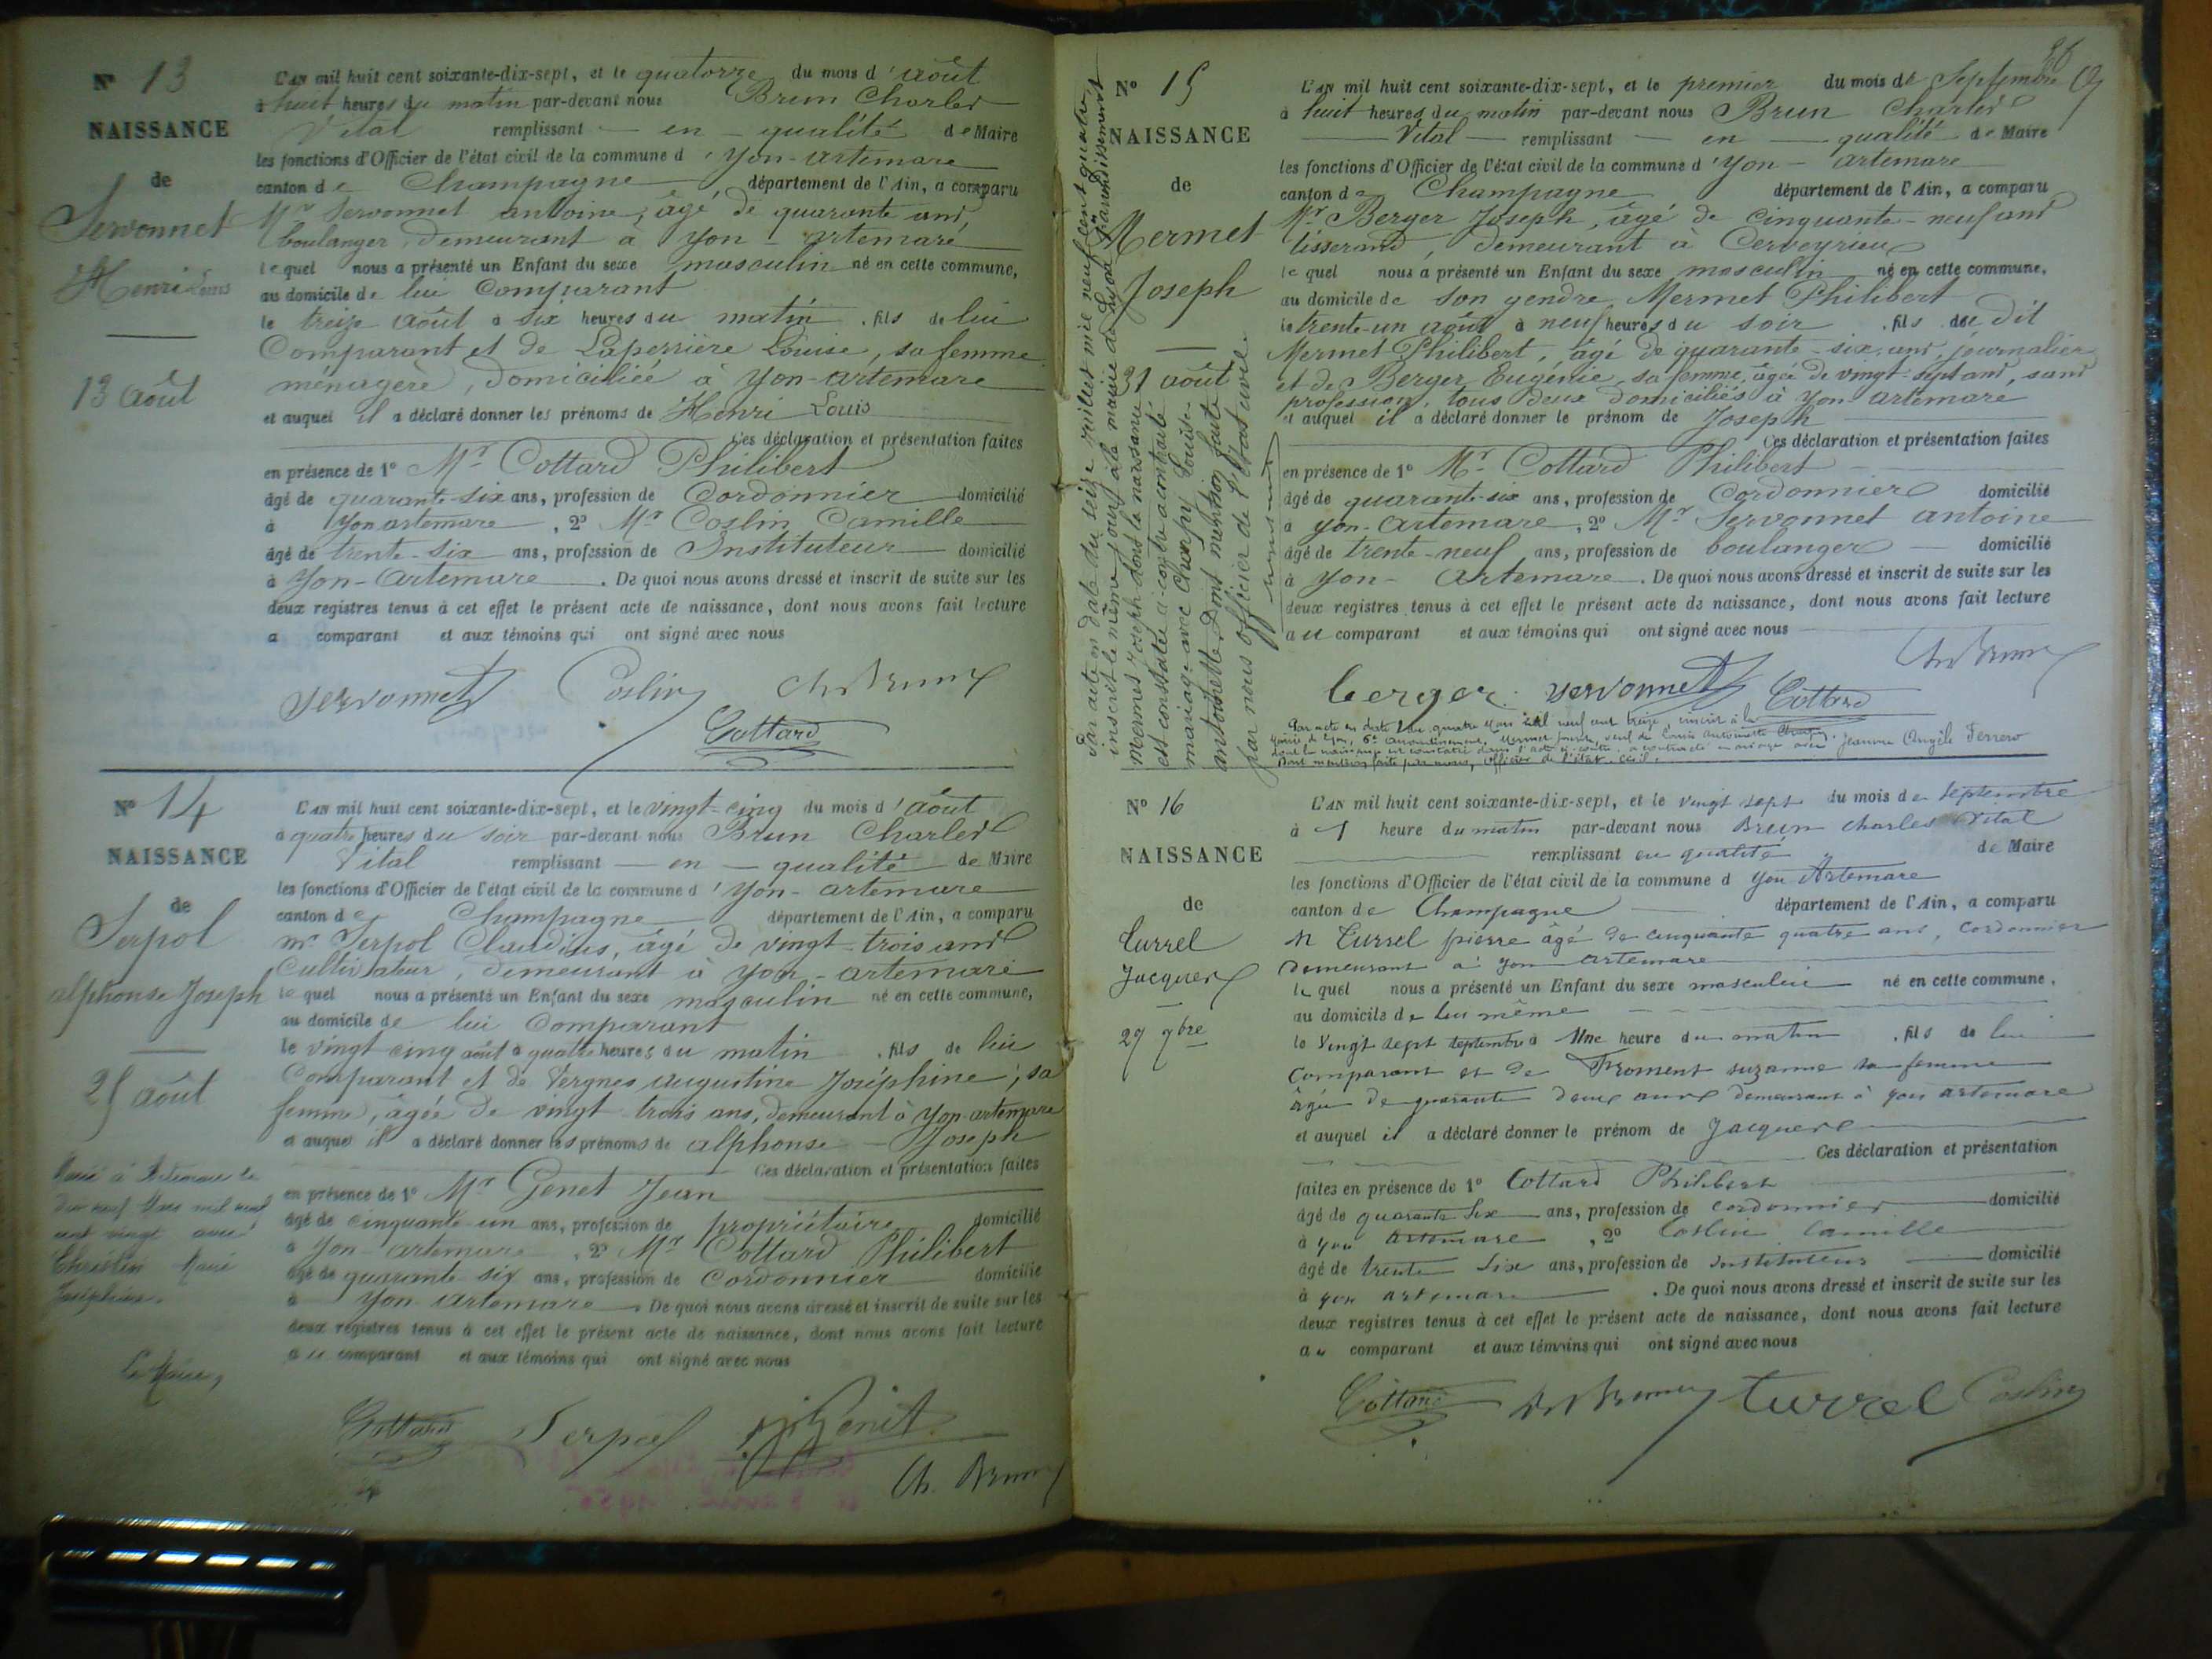 N° 13
NAISSANCE
de
Servonnet
Henri Louis
13 août
L'AN mil huit cent soixante-dix-sept, et le quatorze du mois d'août
à huit heures du matin par-devant nous Brun Charles
Vital remplissant en qualité de Maire
les fonctions d'Officier de l'état civil de la commune d'Yon-artemare
canton de Champagne département de l'Ain, a comparu
Mr Servonnet antoine, âgé de quarante ans
boulanger demeurant à Yon-artemare
lequel nous a présenté un Enfant du sexe masculin né en cette commune,
au domicile de lui Comparant
le treize août à six heures du matin, fils de lui
Comparant et de Laperrière Louise, sa femme
ménagère, domiciliée à Yon-artemare
et auquel il a déclaré donner les prénoms de Henri Louis
Ces déclaration et présentation faites
en présence de 1° Mr Cottard Philibert
âgé de quarante-six ans, profession de Cordonnier domicilié
à Yon artemare, 2° Mr Coslin Camille
âgé de trente-six ans, profession de Instituteur domicilié
à Yon-Artemare. De quoi nous avons dressé et inscrit de suite sur les
deux registres tenus à cet effet le présent acte de naissance, dont nous avons fait lecture
a comparant et aux témoins qui ont signé avec nous
Servonnet Coslin Ch Brun
Cottard
N° 14
NAISSANCE
de
Serpol
alphonse Joseph
25 août
Marié à Artemare le
dix neuf Mars mil neuf
cent vingt avec
Christin Marie
Joséphine.
Le Maire,
L'AN mil huit cent soixante-dix-sept, et le vingt-cinq du mois d'août
à quatre heures du soir par-devant nous Brun Charles
Vital remplissant en qualité de Maire
les fonctions d'Officier de l'état civil de la commune d'Yon-artemare
canton de Champagne département de l'Ain, a comparu
mr Serpol Claudius, âgé de vingt-trois ans
Cultivateur, demeurant à Yon-artemare
lequel nous a présenté un Enfant du sexe masculin né en cette commune,
au domicile de lui Comparant
le vingt cinq août à quatre heures du matin, fils de lui
Comparant et de Vergnes augustine Joséphine, sa
femme, âgée de vingt trois ans, demeurant à Yon-artemare
et auquel il a déclaré donner les prénoms de alphonse Joseph
Ces déclaration et présentation faites
en présence de 1° Mr Genet Jean
âgé de cinquante-un ans, profession de propriétaire domicilié
à Yon-artemare, 2° Mr Cottard Philibert
âgé de quarante-six ans, profession de Cordonnier domicilié
à Yon-artemare. De quoi nous avons dressé et inscrit de suite sur les
deux registres tenus à cet effet le présent acte de naissance, dont nous avons fait lecture
au comparant et aux témoins qui ont signé avec nous
Cottard Serpol Genet
Ch. Brun
26
N° 15
NAISSANCE
de
Mermet
Joseph
31 août
Par acte en date du seize juillet mil neuf cent quatre,
inscrit le même jour à la mairie de Lyon, arrondissement
Mermet Joseph dont la naissance
est constatée ci-contre a contracté
mariage avec Chanpy Louise-
antoinette Dont mention faite
par nous officier de l'état civil.
L'AN mil huit cent soixante-dix-sept, et le premier du mois de Septembre
à huit heures du matin par-devant nous Brun Charles
Vital remplissant en qualité de Maire
les fonctions d'Officier de l'état civil de la commune d'Yon-artemare
canton de Champagne département de l'Ain, a comparu
Mr Berger Joseph, âgé de cinquante-neuf ans
tisserand, demeurant à Cerveyrieu
lequel nous a présenté un Enfant du sexe masculin né en cette commune,
au domicile de son gendre Mermet Philibert
le trente-un août à neuf heures du soir, fils du dit
Mermet Philibert, âgé de quarante-six ans, journalier
et de Berger Eugénie, sa femme, âgée de vingt-sept ans, sans
profession, tous deux domiciliés à Yon-artemare
et auquel il a déclaré donner le prénom de Joseph
Ces déclaration et présentation faites
en présence de 1° Mr Cottard Philibert
âgé de quarante-six ans, profession de Cordonnier domicilié
à Yon-Artemare, 2° Mr Servonnet antoine
âgé de trente-neuf ans, profession de boulanger domicilié
à Yon-Artemare. De quoi nous avons dressé et inscrit de suite sur les
deux registres tenus à cet effet le présent acte de naissance, dont nous avons fait lecture
au comparant et aux témoins qui ont signé avec nous
Ch Brun
berger Servonnet Cottard
Par acte en date du quatre Mars mil neuf cent treize, inscrit à la
Mairie de Lyon, 6e arrondissement, Mermet Joseph, veuf de Louise Antoinette
dont la naissance est constatée dans l'acte ci-contre a contracté mariage avec Jeanne Angèle Ferrero
Dont mention faite par nous, Officier de l'état-civil.
N° 16
NAISSANCE
de
Turrel
Jacques
27 9bre
L'AN mil huit cent soixante-dix-sept, et le vingt sept du mois de Septembre
à heure du matin par-devant nous Brun Charles Vital
remplissant en qualité de Maire
les fonctions d'Officier de l'état civil de la commune d Yon Artemare
canton de Champagne département de l'Ain, a comparu
M Turrel pierre âgé de cinquante quatre ans, cordonnier
demeurant à yon artemare
lequel nous a présenté un Enfant du sexe masculin né en cette commune,
au domicile de lui même
le vingt sept septembre à Une heure du matin, fils de lui
Comparant et de Froment suzanne sa femme
âgée de quarante deux ans demeurant à yon artemare
et auquel il a déclaré donner le prénom de Jacques
Ces déclaration et présentation
faites en présence de 1° Cottard Philibert
âgé de quarante six ans, profession de cordonnier domicilié
à yon artemare, 2° Coslin Camille
âgé de trente six ans, profession de instituteur domicilié
à yon artemare. De quoi nous avons dressé et inscrit de suite sur les
deux registres tenus à cet effet le présent acte de naissance, dont nous avons fait lecture
au comparant et aux témoins qui ont signé avec nous
Cottard Ch Brun turrel Coslin